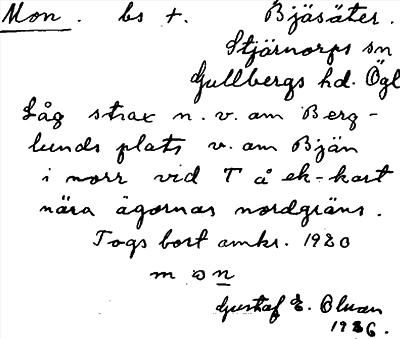 Mon. bs +. Bjäsäter.
Stjärnorps sn
Gullbergs hd. Ögl
Låg strax n. v. om Berg-
lunds plats v. om Bjän
i norr vid T å ek-kart
nära ägornas nordgräns.
Togs bort omkr. 1920
m ɔ n
Gustaf E. Olsson
1926.